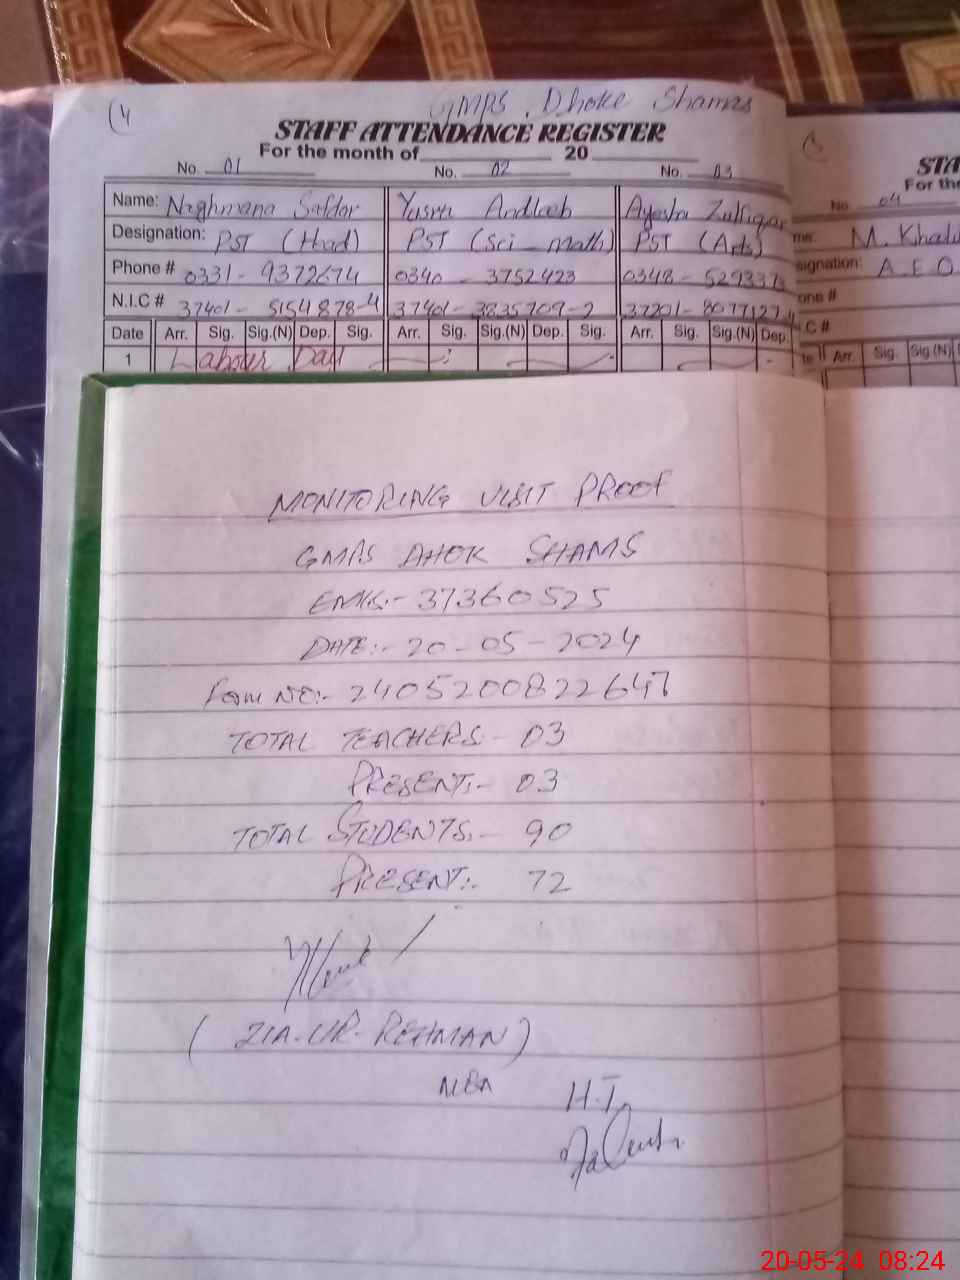 (4
GMPS Dhoke Shamas
STAFF ATTENDANCE REGISTER
For the month of 20
No. 01 No. 02 No. 03
Name: Naghmana Safdar Yusra Andleeb Ayesha Zulfiqar
Designation: PST (Head) PST (Sci_math) PST (Arts)
Phone # 0331-9372674 0340-3752423
N.I.C #
Date Arr. Sig. Sig.(N) Dep. Sig. Arr. Sig. Sig.(N) Dep. Sig. Arr. Sig. Sig.(N) Dep.
1 Labour Day
STA
For the
No. 04
me: M. Khal
signation: A E O
one #
C #
te Arr. Sig. Sig.(N)
MONITORING VISIT PROOF
GMPS DHOK SHAMS
EMIS:- 37360525
DATE:- 20-05-2024
Form NO:- 2405200822647
TOTAL TEACHERS:- 03
PRESENT:- 03
TOTAL STUDENTS:- 90
PRESENT:- 72
(ZIA-UR-REHMAN)
MEA
H.T
20-05-24 08:24